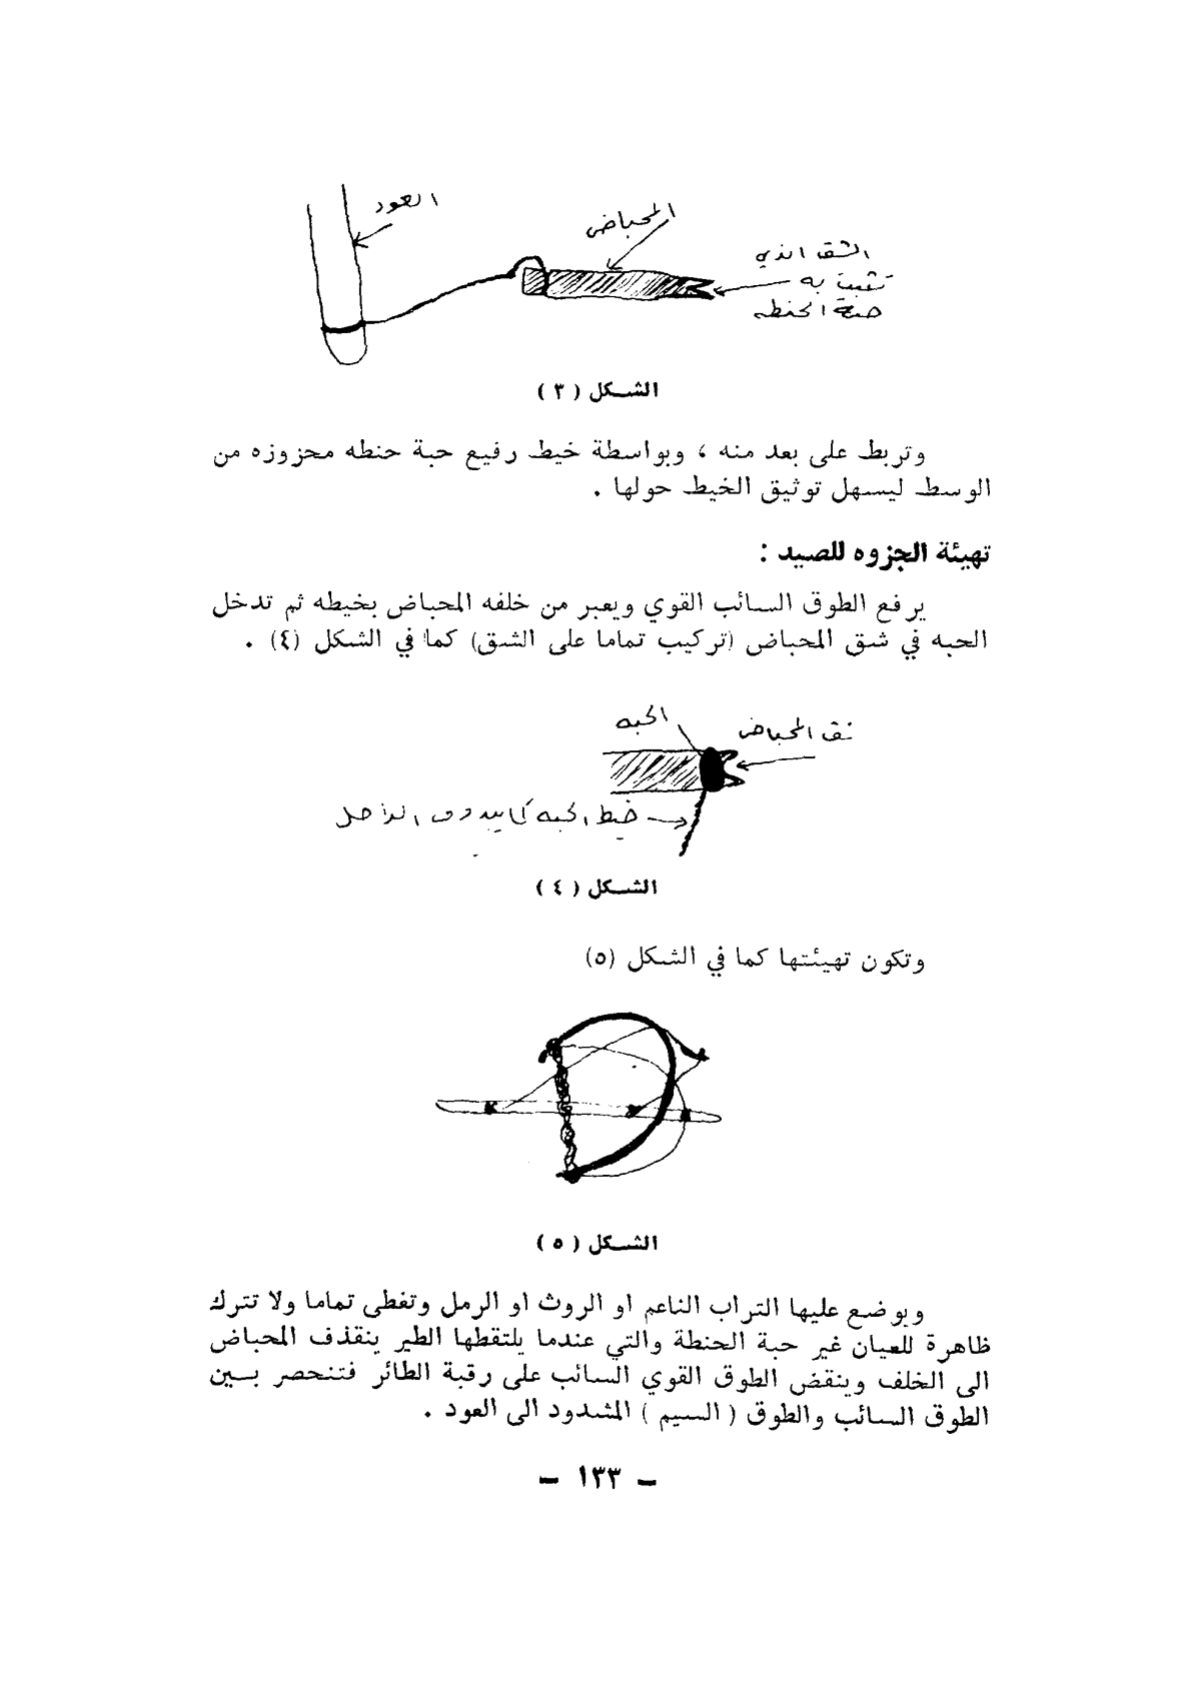 العود
المحباض
الشق الذي
تثبت به
حبة الحنطه
الشكل ( ٣ )
وتربط على بعد منه ، وبواسطة خيط رفيع حبة حنطه محزوزه من
الوسط ليسهل توثيق الخيط حولها .
تهيئة الجزوه للصيد :
يرفع الطوق السائب القوي ويعبر من خلفه المحباض بخيطه ثم تدخل
الحبه في شق المحباض (تركيب تماما على الشق) كما في الشكل (٤) .
الحبه
المحباض
خيط الحبه كما يبدو من الداخل
الشكل ( ٤ )
وتكون تهيئتها كما في الشكل (٥)
الشكل ( ٥ )
ويوضع عليها التراب الناعم او الروث او الرمل وتغطى تماما ولا تترك
ظاهرة للعيان غير حبة الحنطة والتي عندما يلتقطها الطير ينقذف المحباض
الى الخلف وينقض الطوق القوي السائب على رقبة الطائر فتنحصر بــين
الطوق السائب والطوق ( السيم ) المشدود الى العود .
– ١٣٣ –